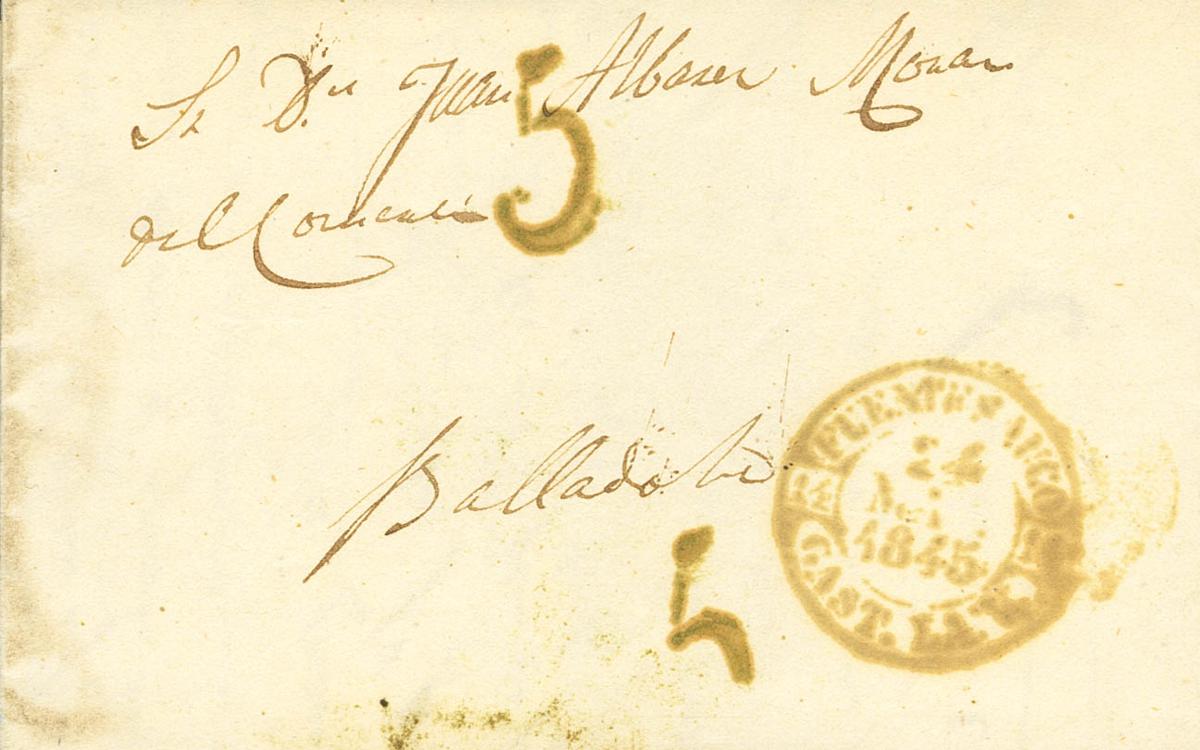 Sr Dn Juan Alvarez Moran
del Comercio
5
Balladolid
5
FUENTESAUCO
24
1845
CAST. LA V.